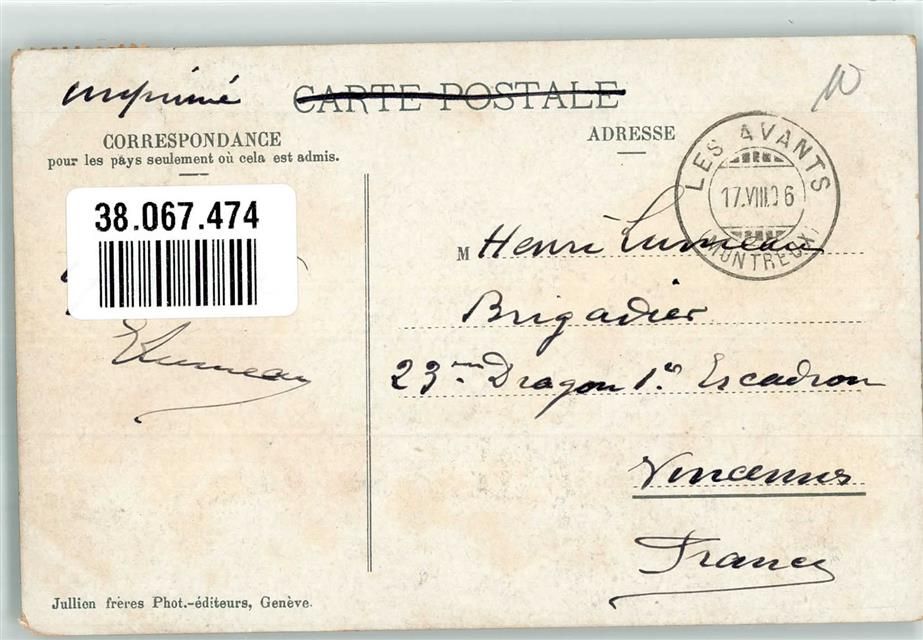 imprimé
CARTE POSTALE
10
CORRESPONDANCE
pour les pays seulement où cela est admis.
ADRESSE
LES AVANTS
17.VIII.06
(MONTREUX)
38.067.474
M Henri Lumeau
Brigadier
23me Dragon 1er Escadron
Vincennes
France
ELumeau
Jullien frères Phot.-éditeurs, Genève.